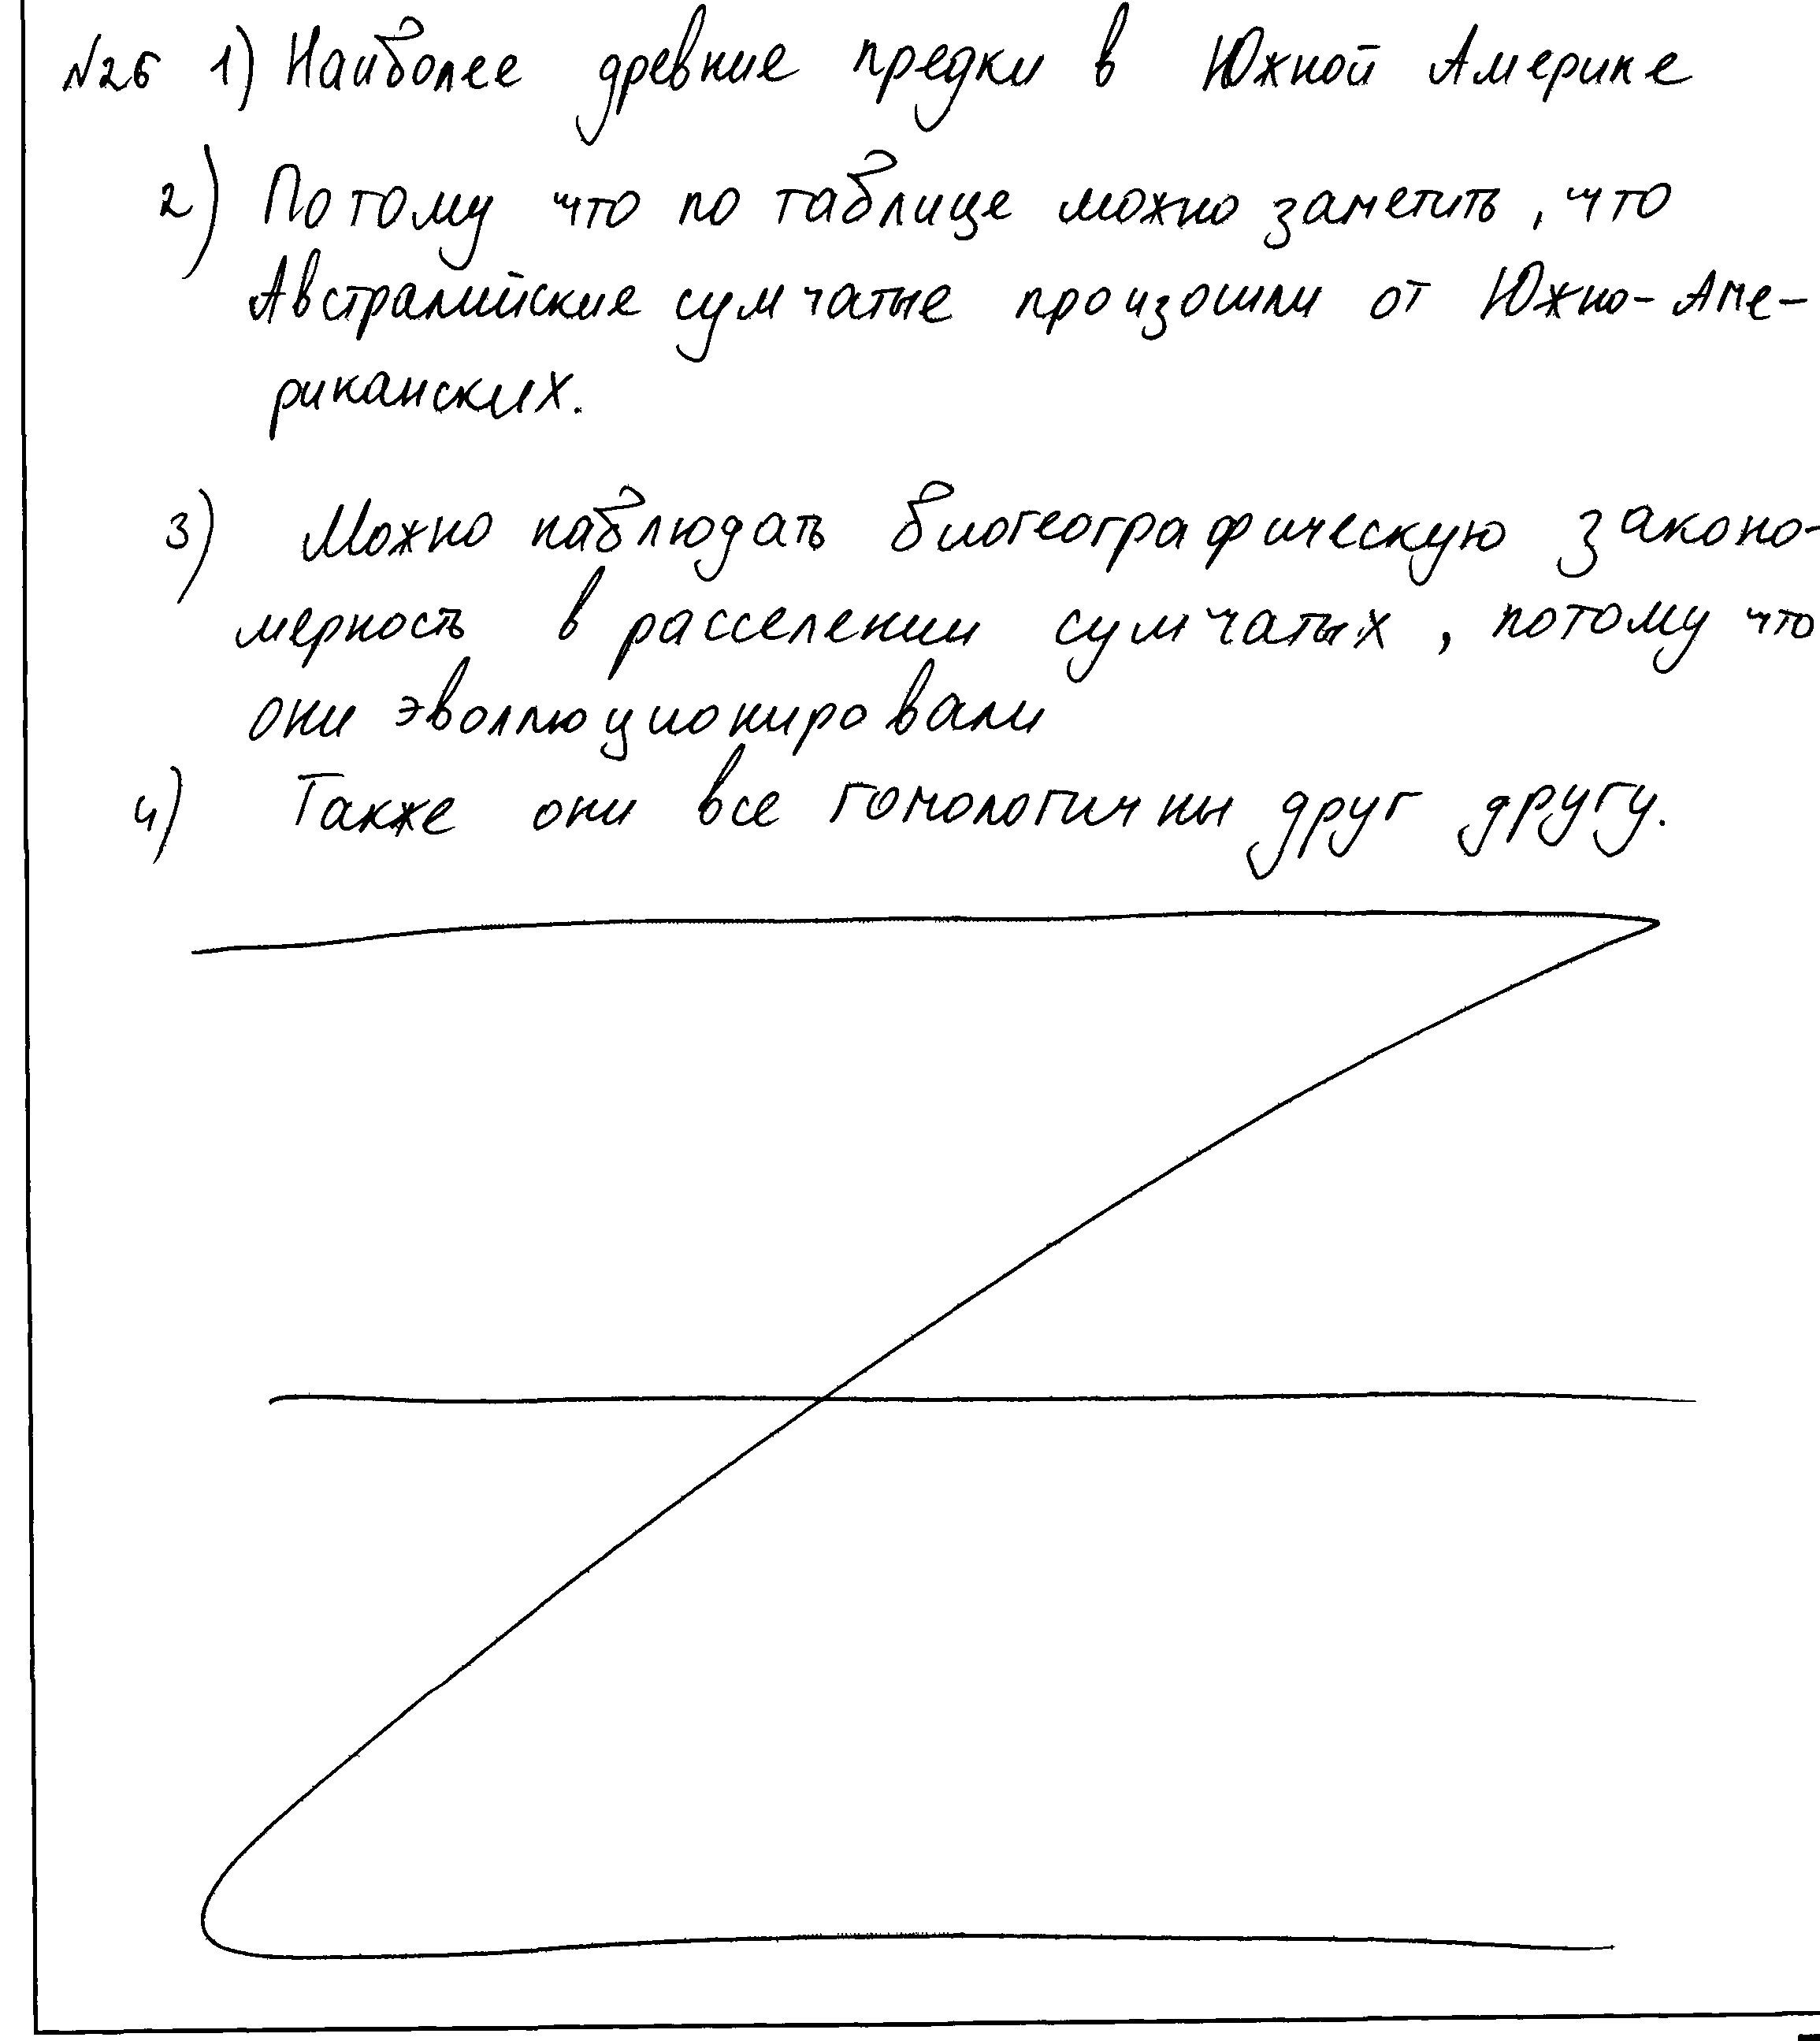 №26 1) Наиболее древние предки в Южной Америке
2) Потому что по таблице можно заметить, что
Австралийские сумчатые произошли от Южно-Аме-
риканских.
3) Можно наблюдать биогеографическую законо-
мерность в расселении сумчатых, потому что
они эволлюционировали
4) Также они все гомологичны друг другу.